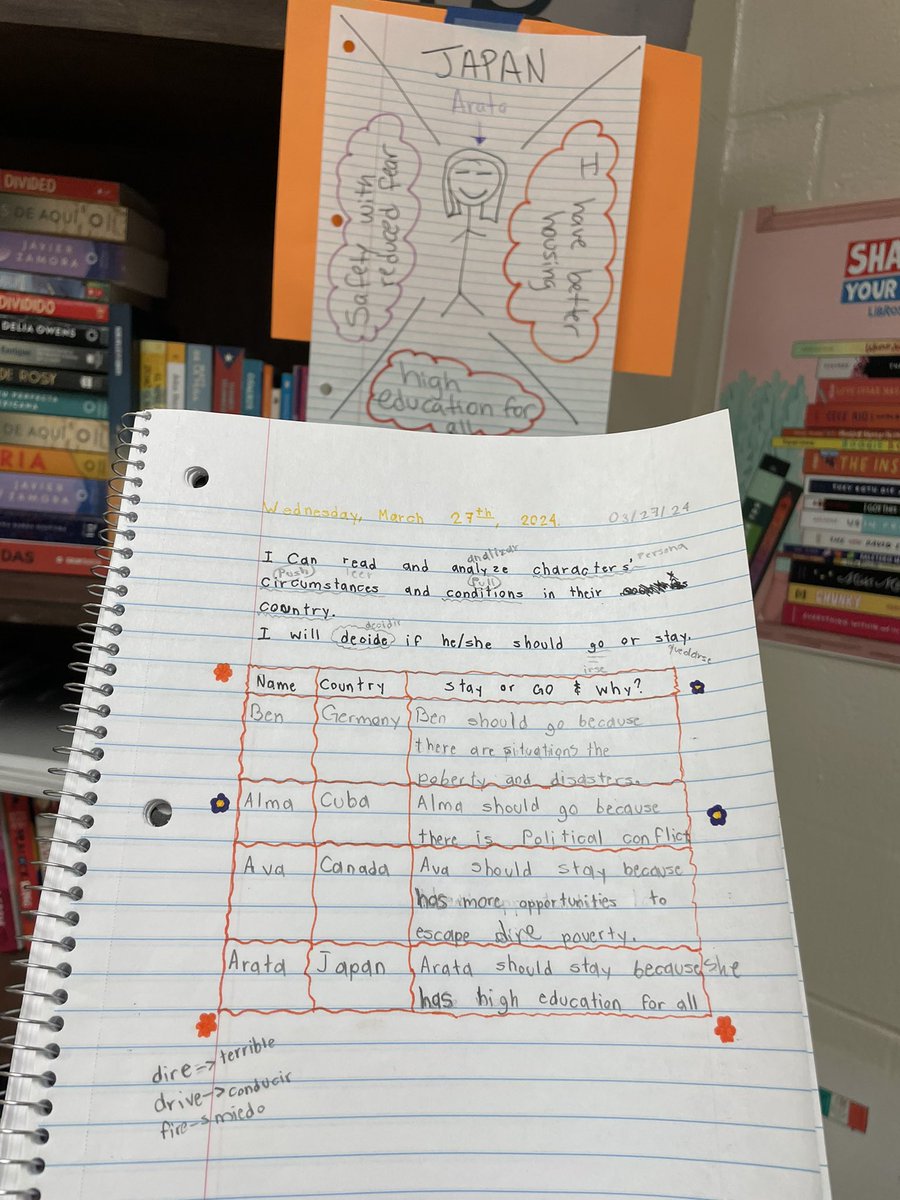 JAPAN
Arata
Safety with
reduced fear
I have better
housing
high
education for
all
DIVIDED
DE AQUÍ
JAVIER
ZAMORA
DIVIDIDO
DELIA OWENS
DE ROSY
DE AQUÍ
RIA
JAVIER
ZAMORA
DAS
SHA
YOUR
LIBROS
THE INS
CHUNKY
Wednesday, March 27th, 2024. 03/27/24
analizar
I Can read and analyze characters', persona
(Push) leer (Pull)
circumstances and conditions in their
country.
decidir
I will decide if he/she should go or stay.
irse quedarse
Name Country Stay or Go & why?
Ben Germany Ben should go because
there are situations the
poberty and disasters.
Alma Cuba Alma should go because
there is Political conflict
Ava Canada Ava should stay because
has more opportunities to
escape dire poverty.
Arata Japan Arata should stay because she
has high education for all
dire→terrible
drive→conducir
fire→miedo